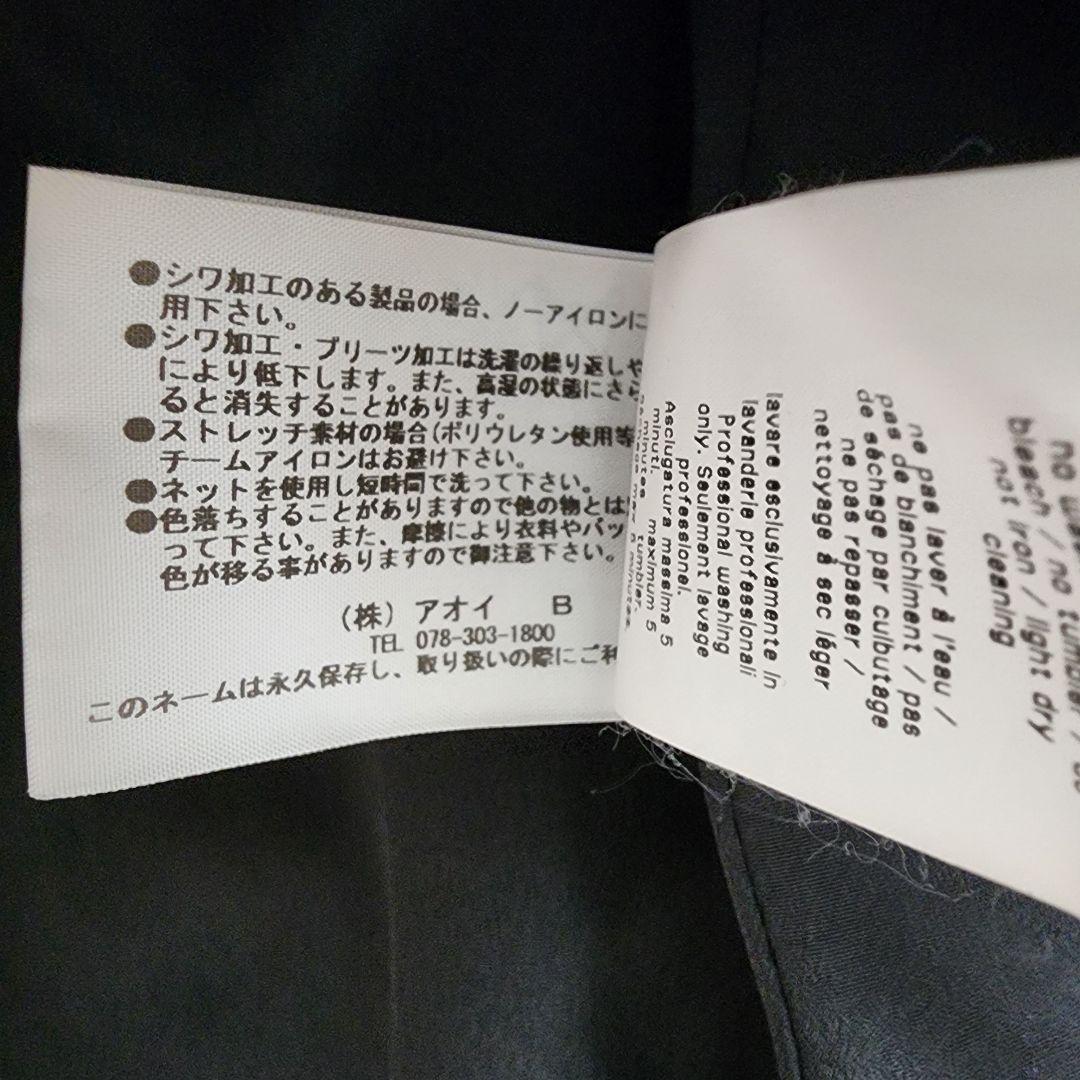 ●シワ加工のある製品の場合、ノーアイロンに
用下さい。
●シワ加工・プリーツ加工は洗濯の繰り返しや
により低下します。また、高湿の状態にさら
ると消失することがあります。
●ストレッチ素材の場合(ポリウレタン使用等
チームアイロンはお避け下さい。
●ネットを使用し短時間で洗って下さい。
●色落ちすることがありますので他の物とは
って下さい。また、摩擦により衣料やバッ
色が移る事がありますので御注意下さい。
(株) アオイ B
TEL 078-303-1800
このネームは永久保存し、取り扱いの際にご利
no
bleach / no tumbler /
not iron / light dry
cleaning
ne pas laver à l'eau /
pas de blanchiment / pas
de séchage par culbutage
ne pas repasser /
nettoyage à sec léger
lavare esclusivamente in
lavanderie professionali
Professional washing
only. Seulement lavage
professionel.
Asciugatura massima 5
minuti. maximum 5
minutes tumbler.
minutes.